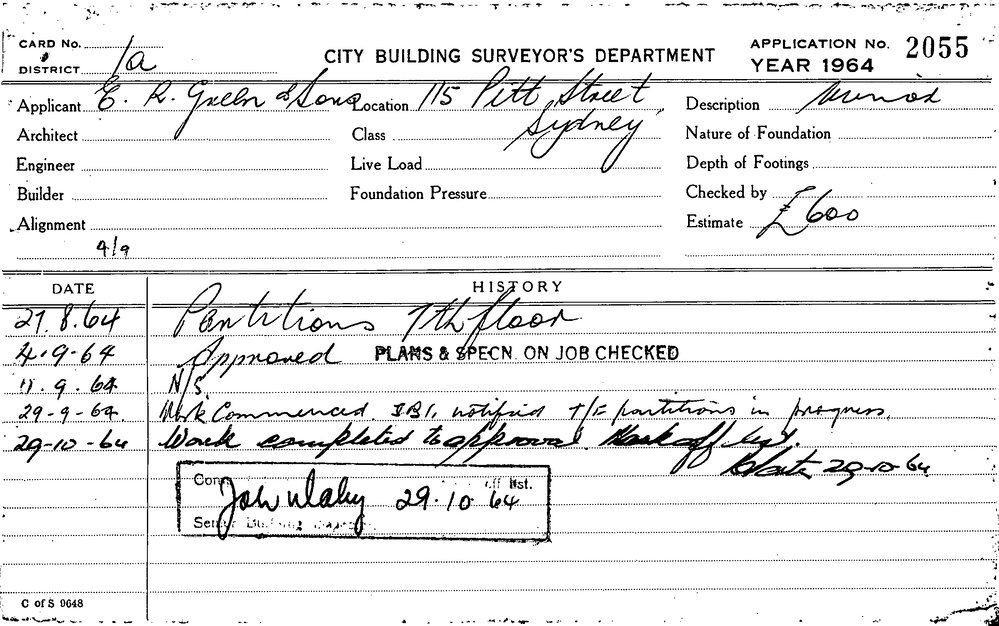 CARD No.
DISTRICT 1a
CITY BUILDING SURVEYOR'S DEPARTMENT
APPLICATION No. 2055
YEAR 1964
Applicant E. R. Green & Sons Location 115 Pitt Street Sydney Description Minor
Architect Class Nature of Foundation
Engineer Live Load Depth of Footings
Builder Foundation Pressure Checked by
Alignment Estimate £600
4/9
DATE HISTORY
27.8.64 Partitions 7th floor
4.9.64 Approved PLANS & SPECN. ON JOB CHECKED
11.9.64 N/S.
29-9-64 Work Commenced. I.B.I. notified T/F partitions in progress.
29-10-64 Work completed to approval. Mark off list.
29-10-64
29.10.64
Senior Building
C of S 9648